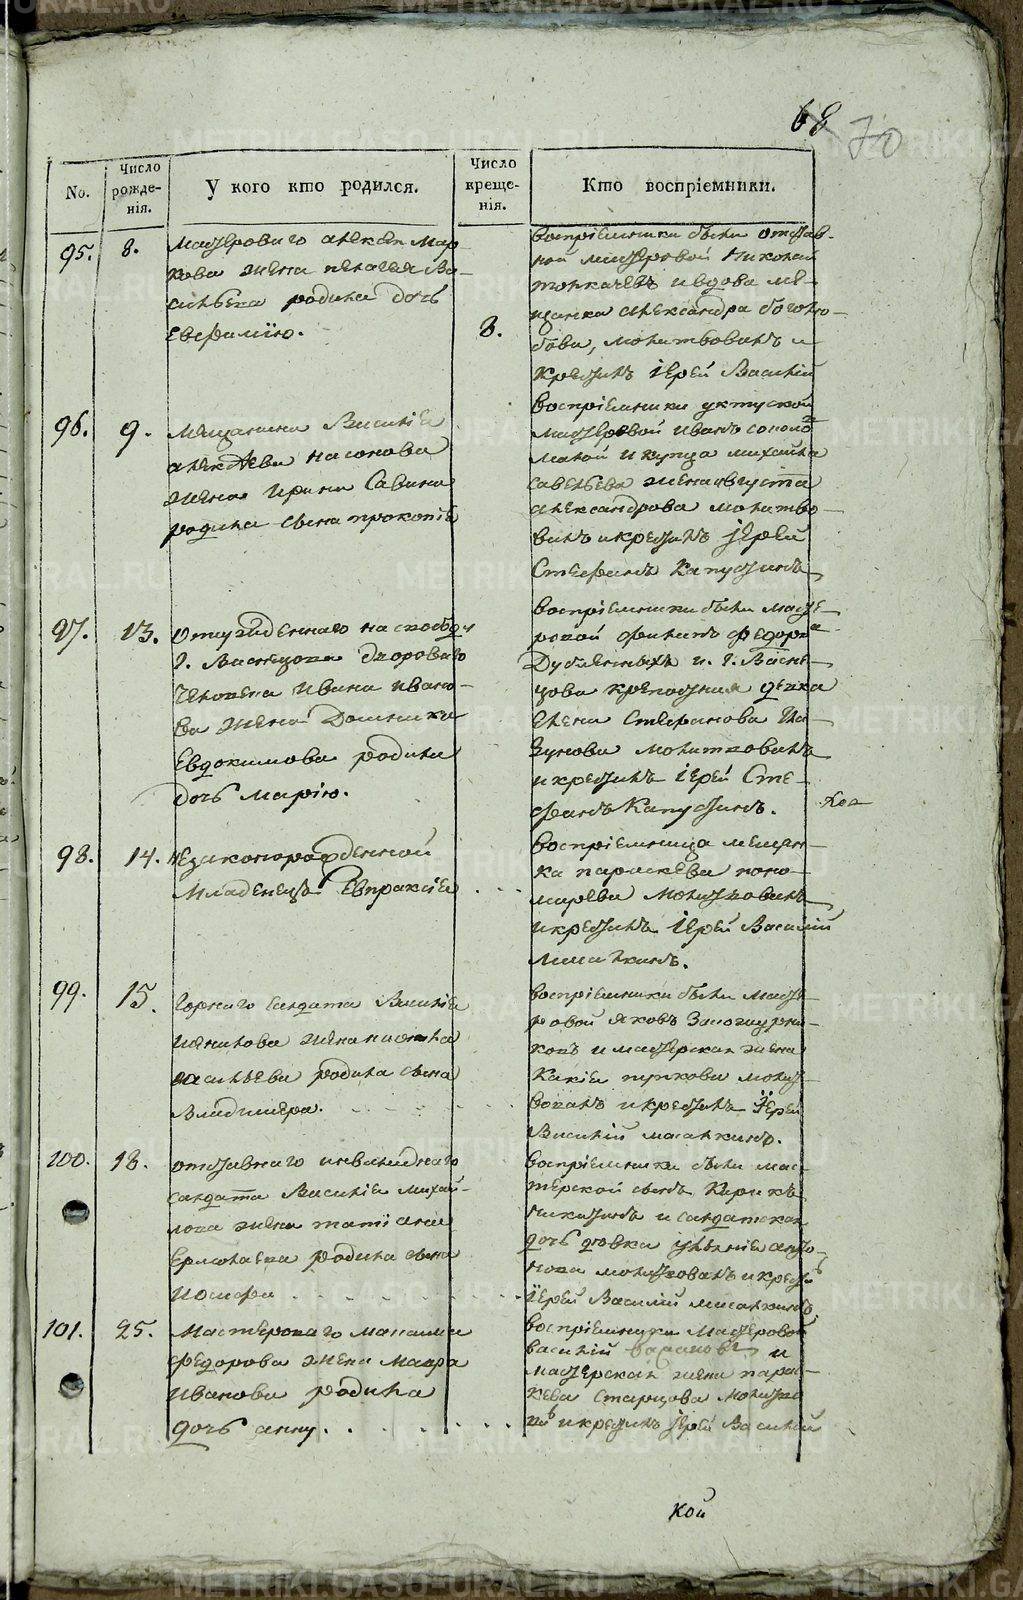 68 70
No.
Число рожде-
нія.
У кого кто родился.
Число креще-
нія.
Кто воспріемники.
95. 8.
мастероваго алексея мар-
кова жена пелагея ва-
сильева родила дочь
евфимїю.
8.
воспріемники были отстав-
ной мастеровой Николай
толкачевъ и вдова ме-
щанка александра боголю-
бова, молитвовалъ и
крестилъ іерей Василій
96. 9.
мещанина Василіа
алексеева насонова
жена Ирина Савина
родила сына прокопіа
воспріемники уктуской
мастеровой иванъ соколо
малой и купца михайла
савельева жена августа
александрова молитво-
валъ и крестилъ іерей
Стефанъ Капустинъ
97. 13.
отпущеннаго на свободу
г. Васнецова двороваго
человека Ивана Ивано-
ва жена Домника
Евдокимова родила
Дочь марію.
воспріемники были масте-
ровой филипъ федоровъ
Дубленныхъ и г. Васне-
цова крепостная девка
елена Стефанова Га-
зунова молитвовалъ
и крестилъ іерей Сте-
фанъ Капустинъ.
98. 14.
незаконорожденной
младенецъ Евпраксіа . . .
воспріемница мещан-
ка параскева поно-
марева молитвовалъ
и крестилъ іерей Василій
Масалкинъ.
99. 15.
горнаго салдата Василіа
жена
васильева родила сына
владимера.
воспріемники были масте-
ровой яковъ
ковъ и мастерская жена
пупкова молит-
вовалъ и крестилъ Іерей
Василій масалкинъ.
100. 18.
отставнаго инвалиднаго
салдата Василіа михай-
лова жена татїана
Ермолаева родила сына
Иосифа
воспріемники были мас-
терской сынъ Кирикъ
никитинъ и салдатская
дочь девка анто-
нова молитвовалъ и крести
іерей Василій масалкинъ
101. 25.
Мастероваго
федорова жена мавра
Иванова родила
дочь анну. . . .
воспріемники мастеровой
василій и
мастерская жена парас-
кева Старцова молитво
лъ и крестилъ іерей Василій
кой
METRIKI.GASO-URAL.RU